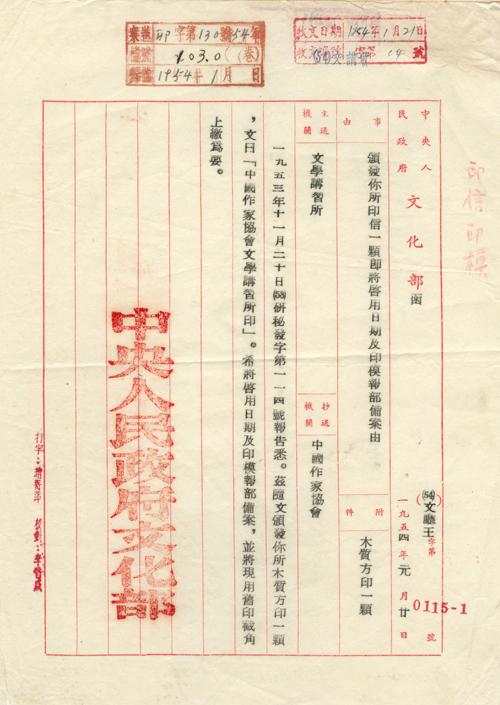 收文日期 1954年1月21日
字第 14 號
印 字第130號54年
103.0 (卷)
1954年1月 日
印信印模
中央人民政府 文化部 函
(54)文廳王字第 0115-1 號
一九五四年元月廿日
事由
頒發你所印信一顆即將啓用日期及印模報部備案由
附件
木質方印一顆
主送機關
文學講習所
抄送機關
中國作家協會
一九五三年十一月二十日(53)研秘發字第一一四號報告悉。茲隨文頒發你所木質方印一顆
，文曰「中國作家協會文學講習所印」。希將啓用日期及印模報部備案，並將現用舊印截角
上繳爲要。
中央人民政府文化部
打字：
校對：